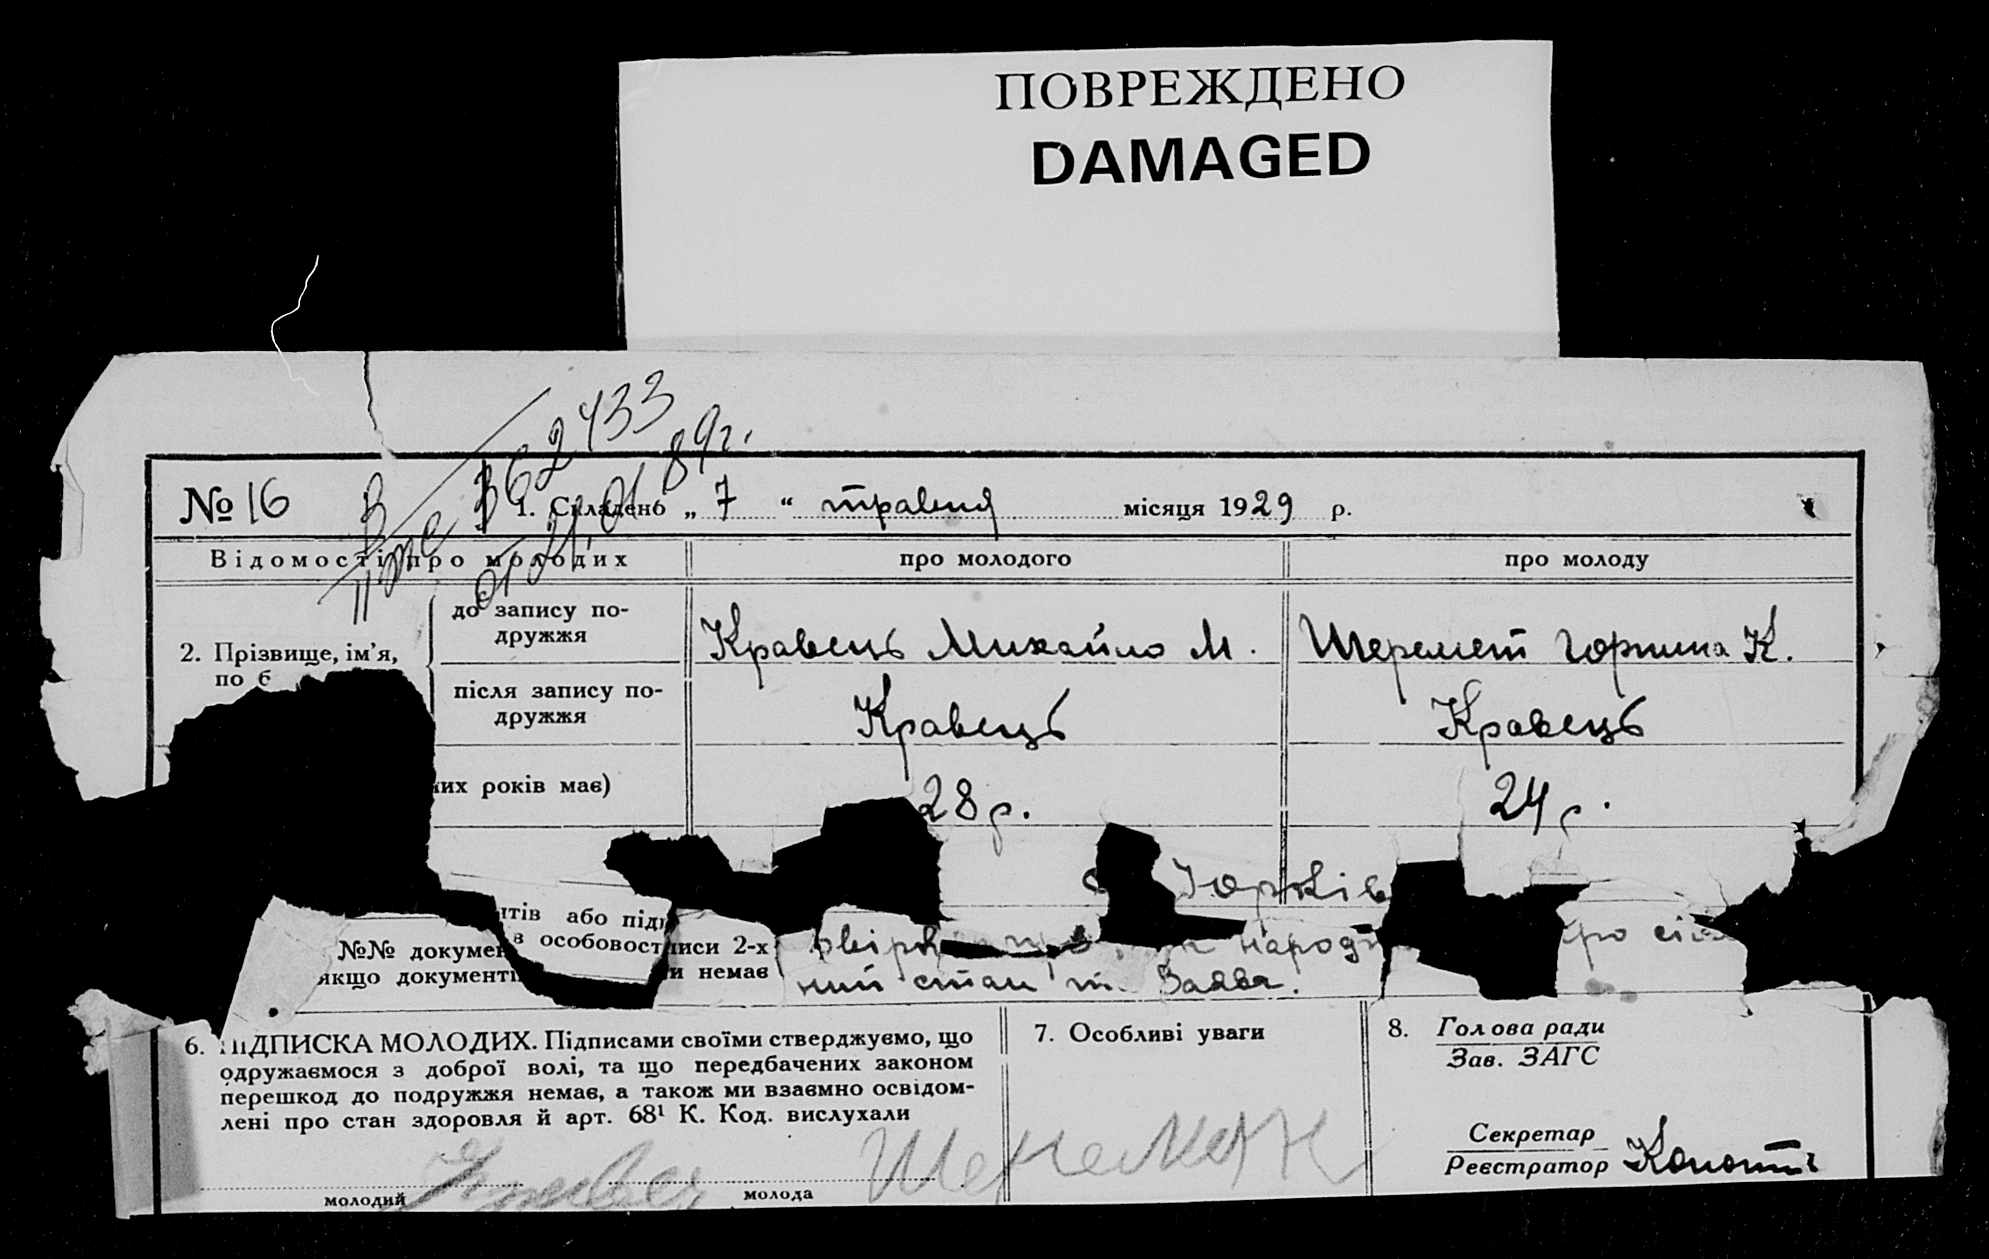 ПОВРЕЖДЕНО
DAMAGED
№ 16
1. Складено „ 7 “ травня місяця 1929 р.
362433
21,01 89г.
Відомості про молодих
про молодого
про молоду
2. Прізвище, ім’я,
по б
до запису по-
дружжя
Кравець Михайло М.
Шеремет Горпина К.
після запису по-
дружжя
Кравець
Кравець
них років має)
28 р.
24 р.
Юрків
нтів або підп
в особовост
№№ докумен
иси 2-х
якщо документі
и немає
народ
про сі
ний стан
Заява.
6. ПІДПИСКА МОЛОДИХ. Підписами своїми стверджуємо, що
одружаємося з доброї волі, та що передбачених законом
перешкод до подружжя немає, а також ми взаємно освідом-
лені про стан здоровля й арт. 68¹ К. Код. вислухали
молодий
молода
7. Особливі уваги
8. Голова ради
Зав. ЗАГС
Секретар
Реєстратор